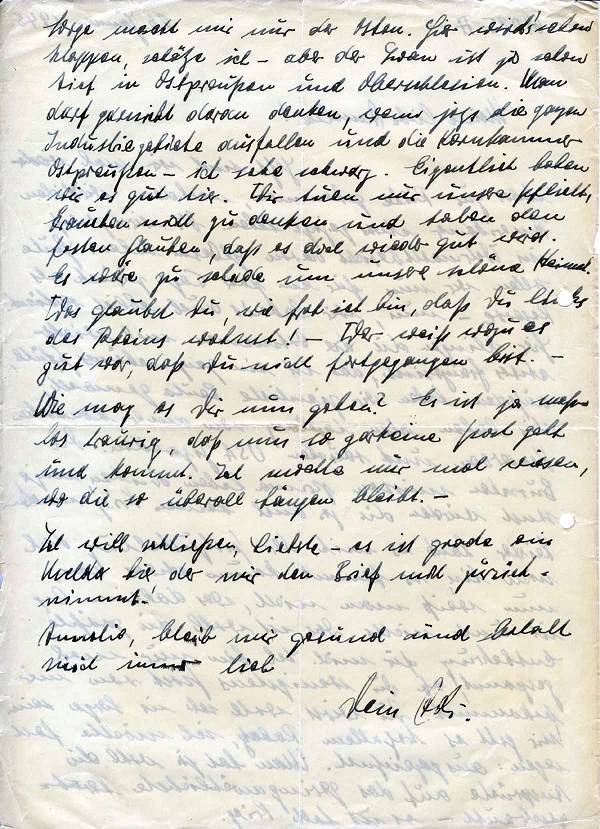 Sorge macht mir nur der Osten. Hier wird's schon
klappen, schätze ich – aber der Iwan ist ja schon
tief in Ostpreußen und Oberschlesien. Man
darf garnicht daran denken, wenn jetzt die ganzen
Industriegebiete ausfallen und die Kornkammer
Ostpreußen – ich sehe schwarz. Eigentlich haben
wir es gut hier. Wir tuen nur unsere Pflicht,
brauchen nicht zu denken und haben den
festen Glauben, daß es doch wieder gut wird.
Es wäre zu schade um unsere schöne Heimat.
Was glaubst Du, wie froh ich bin, daß Du links
des Rheins wohnst! – Wer weiß wozu es
gut war, daß Du nicht fortgegangen bist. –
Wie mag es Dir nun gehen? Es ist ja
traurig, daß nun so garkeine Post geht
und kommt. Ich möchte nur mal wissen,
wo die so überall hängen bleibt. –
Ich will schließen, Liebste – es ist grade ein
Melder hier, der mir den Brief mit zurück-
nimmt!
bleib mir gesund und behalt
mich immer lieb
Dein